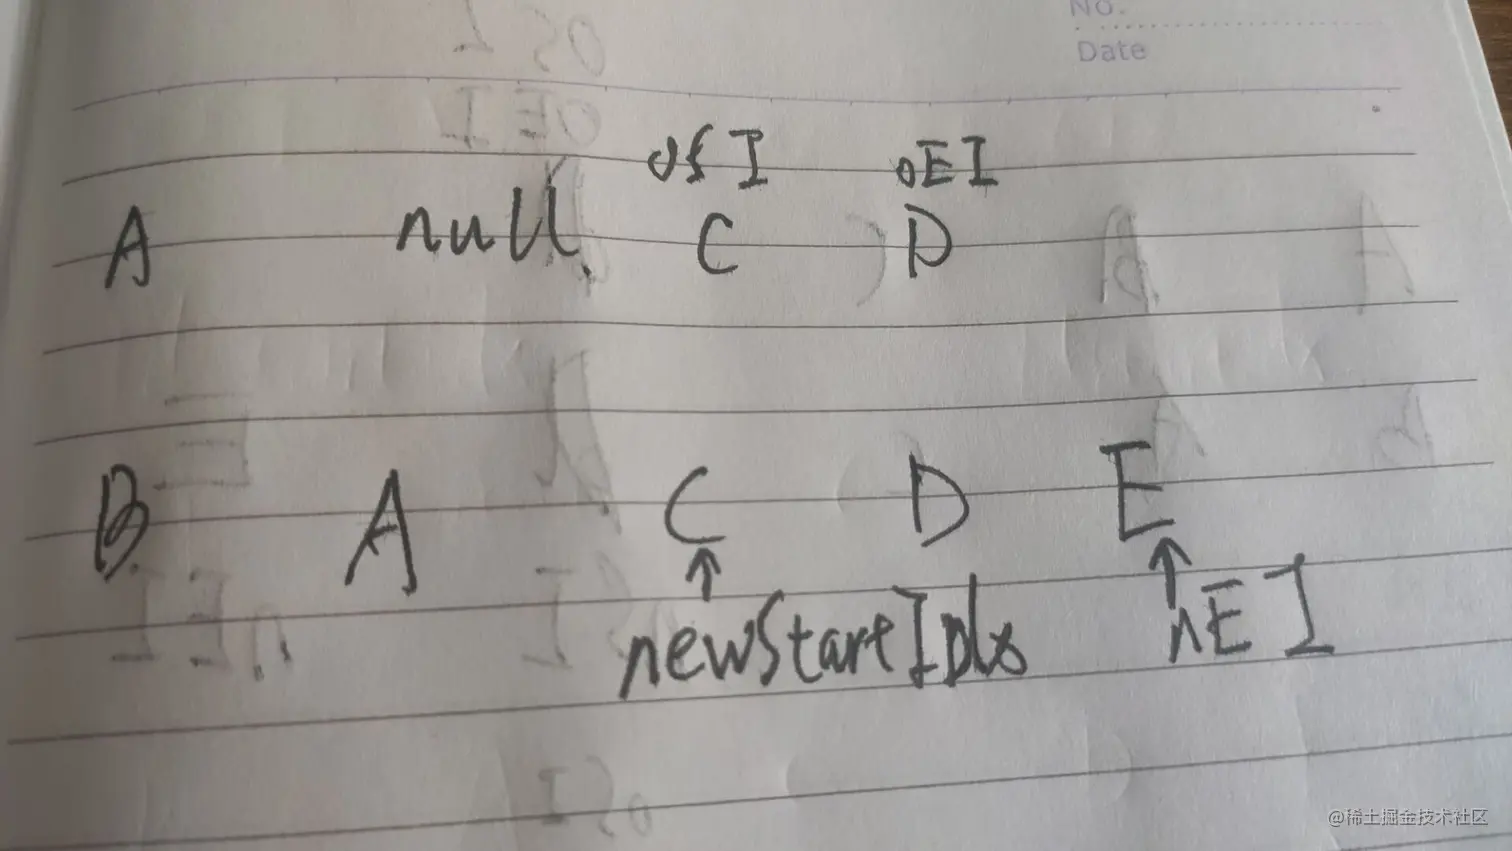 No.
Date
oSI oEI
A null C D
B A C D E
newStartIDx nEI
@稀土掘金技术社区